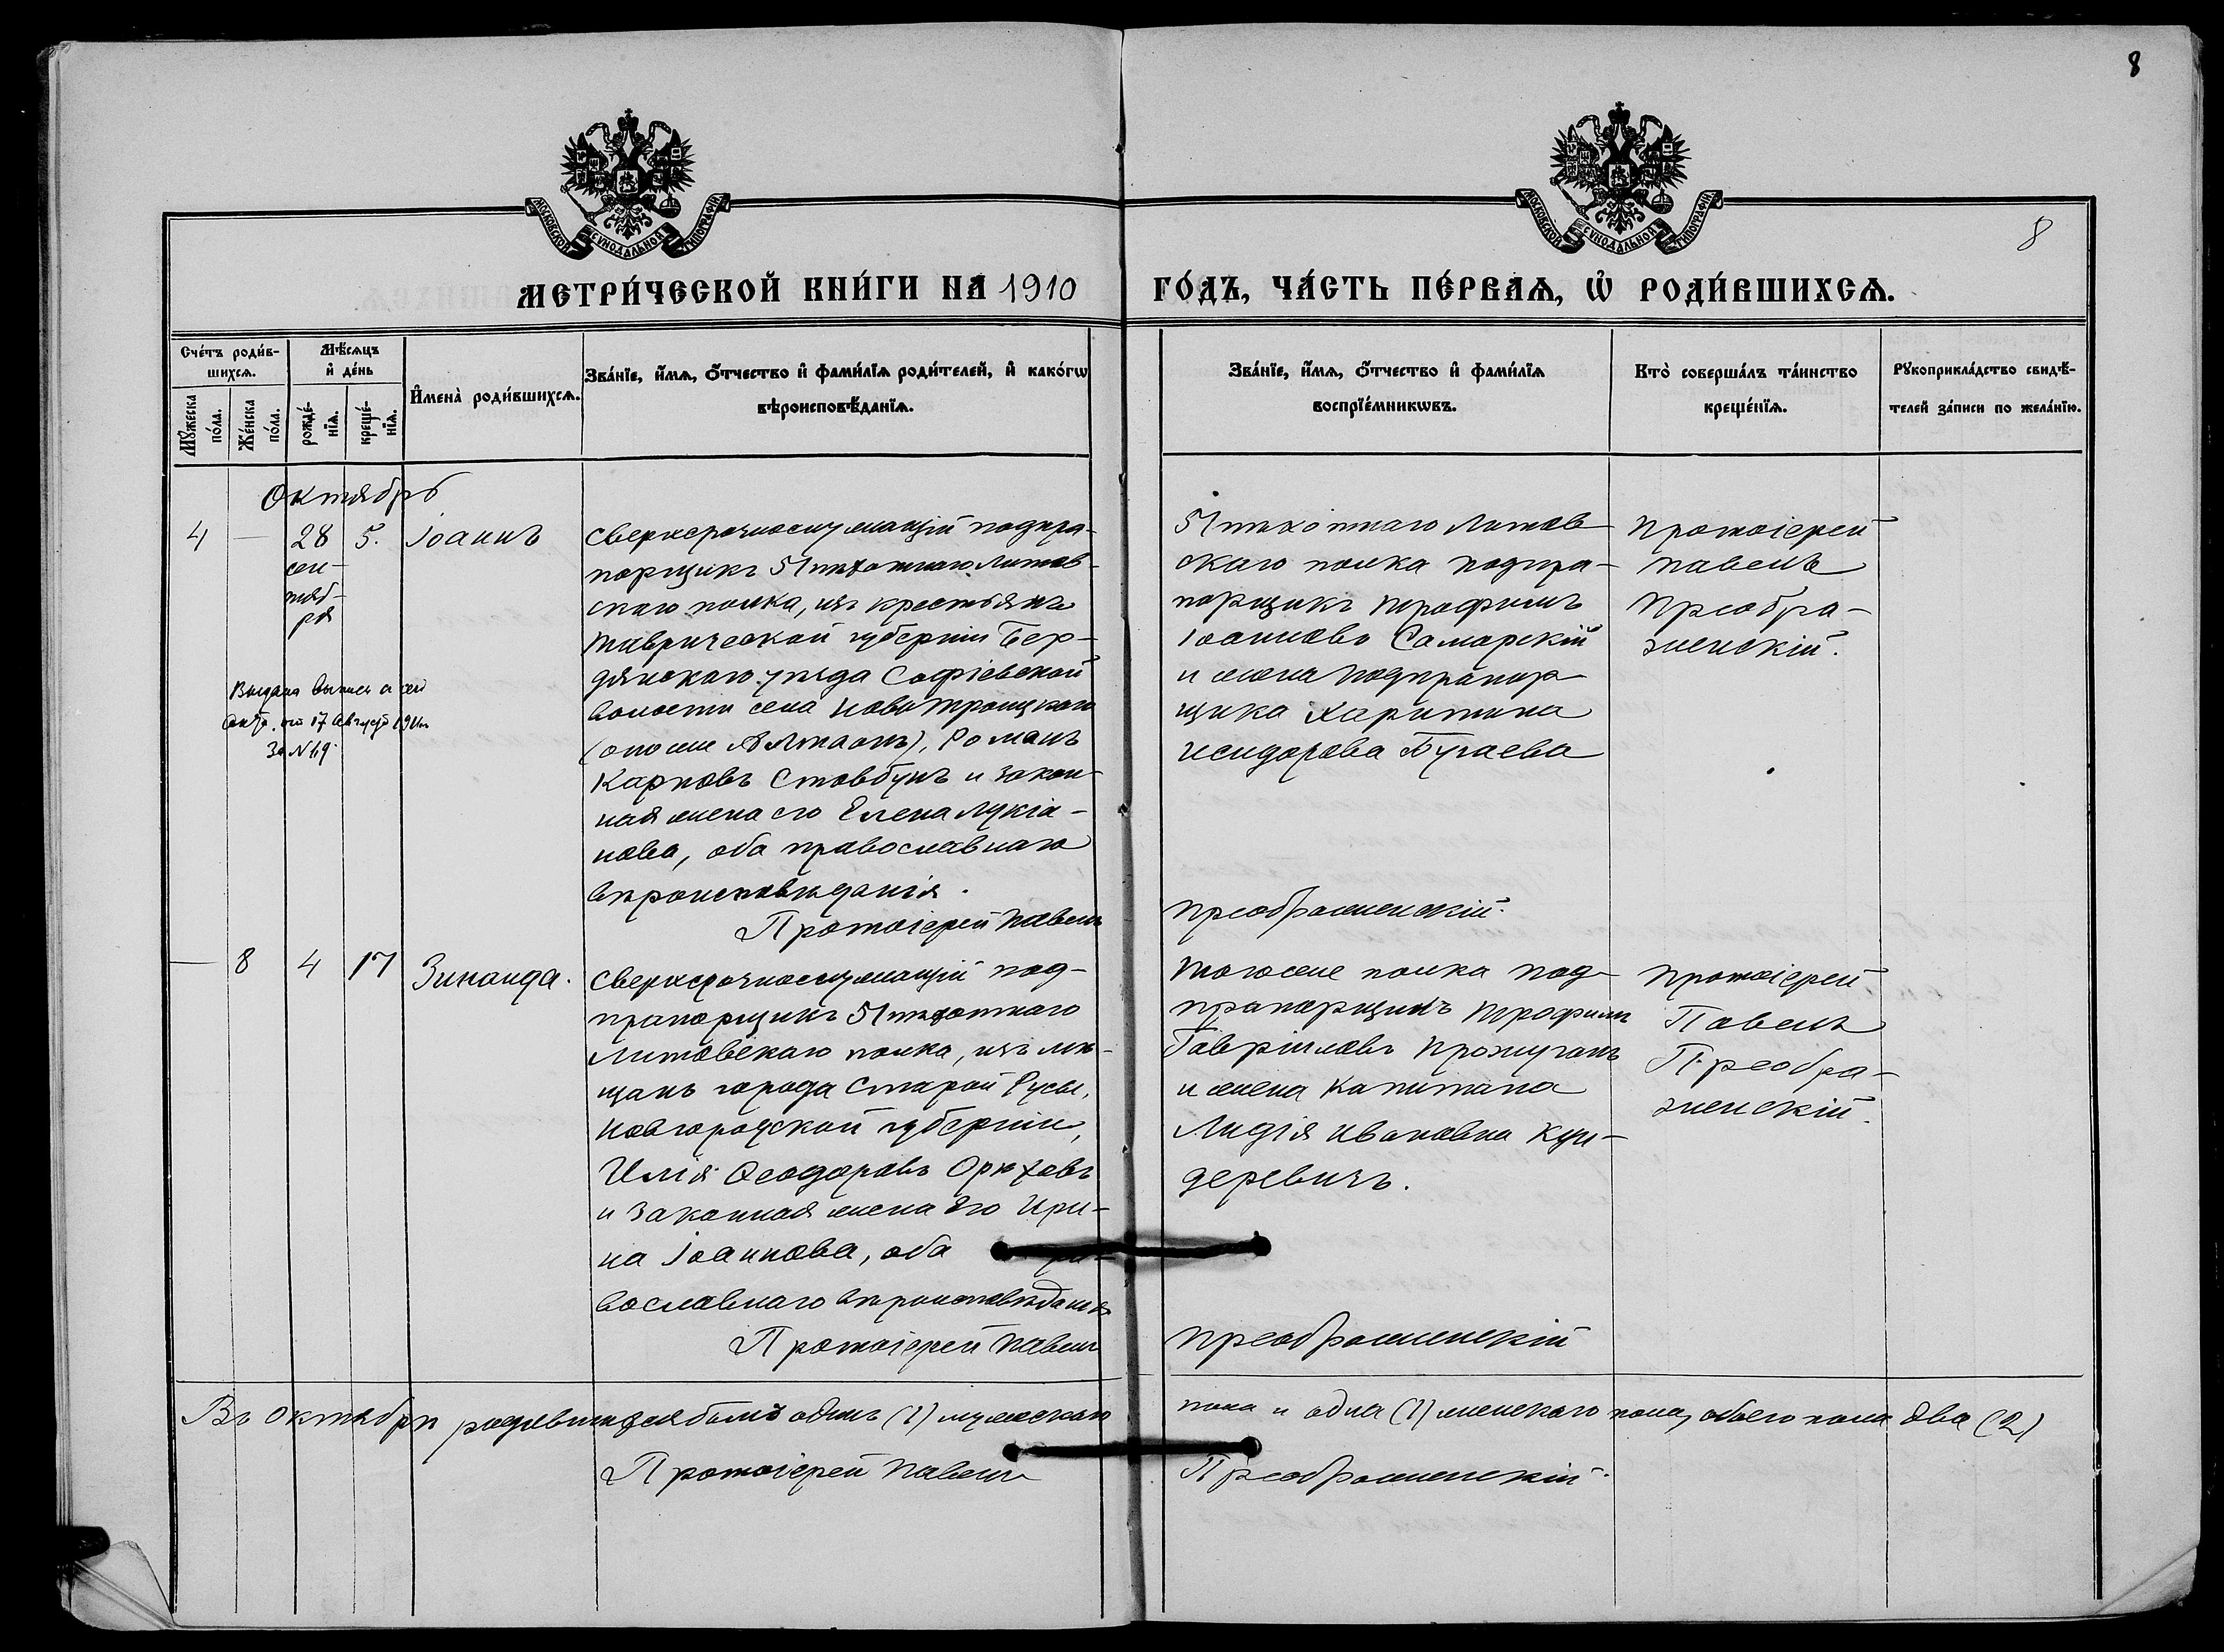 8
МОСКОВСКОЙ СѴНОДАЛЬНОЙ ТИПОГРАФІИ
МОСКОВСКОЙ СѴНОДАЛЬНОЙ ТИПОГРАФІИ
8
МЕТРИ́ЧЕСКОЙ КНИ́ГИ НА 1910 ГО́ДЪ, ЧА́СТЬ ПЕ́РВАѦ, Ѡ҆ РОДИ́ВШИХСѦ.
Сче́тъ роди́в-
шихсѧ.
Мꙋ́жеска
по́ла.
Же́нска
по́ла.
Мѣ́сѧцъ
и҆ де́нь
рожде́-
нїѧ.
креще́-
нїѧ.
И҆мена̀ роди́вшихсѧ.
Зва́нїе, и҆́мѧ, ѻ҆́тчество и҆ фами́лїѧ роди́телей, и҆ како́гѡ
вѣроисповѣ́данїѧ.
Зва́нїе, и҆́мѧ, ѻ҆́тчество и҆ фами́лїѧ
воспрїе́мникѡвъ.
Кто̀ соверша́лъ та́инство
креще́нїѧ.
Рꙋкоприкла́дство свидѣ́-
телей за́писи по жела́нїю.
Октябрь
4 — 28 5. Іоаннъ
сен-
тяб-
ря
Выдана выпись о сей
от 17 Августа
За № 49.
сверхсрочнослужащій подпра-
порщикъ 51 пѣхотнаго Литов-
скаго полка, изъ крестьянъ
Таврической губерніи Бер-
дянскаго уѣзда Софіевской
волости села Новотроицкаго
Романъ
Карповъ Стовбунъ и закон-
ная жена его Елена Лукіа-
нова, оба православнаго
вѣроисповѣданія.
Протоіерей Павелъ Преображенскій.
51 пѣхотнаго Литов-
скаго полка подпра-
порщикъ Трофимъ
Іоанновъ Самарскій
и жена подпрапор-
щика Харитина
Исидорова Бугаева
Протоіерей
Павелъ
Преобра-
женскій.
— 8 4 17 Зинаида.
Сверхсрочнослужащій под-
прапорщикъ 51 пѣхотнаго
Литовскаго полка, изъ мѣ-
щанъ города Старой Русы,
Новгородской губерніи,
Илія Ѳеодоровъ Орѣховъ
и законная жена его Ири-
на Іоаннова, оба пра-
вославнаго вѣроисповѣданія
Протоіерей Павелъ Преображенскій
Того же полка под-
прапорщикъ Трофимъ
Гавріиловъ
и жена Капитана
Лидія Ивановна Кун-
деревичъ.
Протоіерей
Павелъ
Преобра-
женскій.
Въ октябрѣ родившихся былъ одинъ (1) мужескаго пола и одна (1) женскаго пола, обоего пола два (2)
Протоіерей Павелъ Преображенскій.